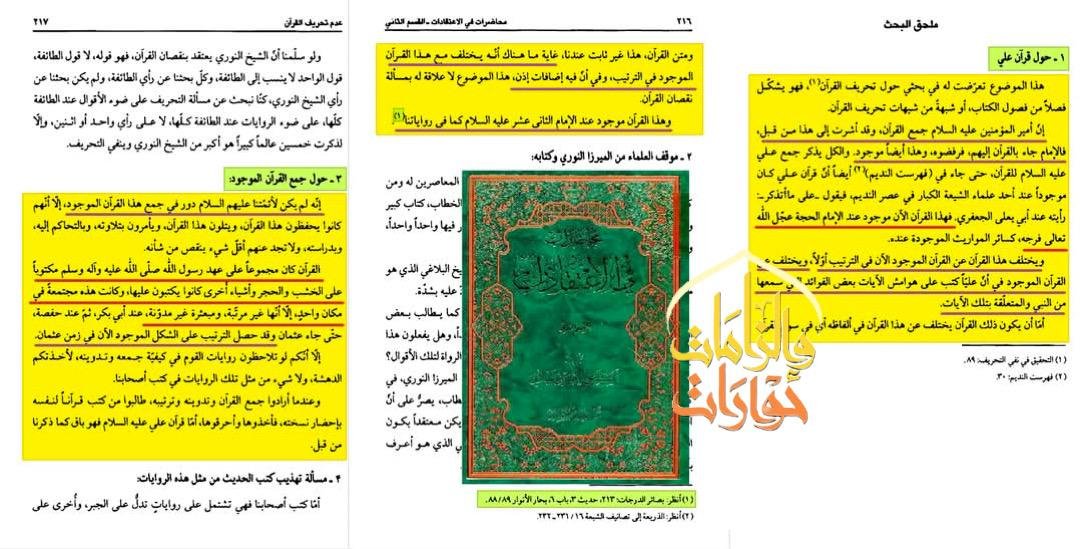 ملحق البحث
١ ـ حول قرآن علي
هذا الموضوع تعرّضت له في بحثي حول تحريف القرآن(١)، فهو يشكّل
فصلاً من فصول الكتاب، أو شبهةً من شبهات تحريف القرآن.
إنّ أمير المؤمنين عليه السلام جمع القرآن، وقد أشرت إلى هذا من قبل،
فالإمام جاء بالقرآن إليهم، فرفضوه، وهذا أيضاً موجود. والكل يذكر جمع علي
عليه السلام للقرآن، حتى جاء في (فهرست النديم)(٢) أيضاً أنّ قرآن علي كان
موجوداً عند أحد علماء الشيعة الكبار في عصر النديم، فيقول ـ على ما أتذكر ـ:
رأيته عند أبي يعلى الجعفري. فهذا القرآن الآن موجود عند الإمام الحجة عجّل الله
تعالى فرجه، كسائر المواريث الموجودة عنده.
ويختلف هذا القرآن عن القرآن الموجود الآن في الترتيب أوّلاً، ويختلف عن
القرآن الموجود في أنّ علياً كتب على هوامش الآيات بعض الفوائد التي سمعها
من النبي والمتعلّقة بتلك الآيات.
أمّا أن يكون ذلك القرآن يختلف عن هذا القرآن في ألفاظه أي في سور
(١) التحقيق في نفي التحريف: ٨٩.
(٢) فهرست النديم: ٣٠.
٢١٦
محاضرات في الاعتقادات ـ القسم الثاني
ومتن القرآن، هذا غير ثابت عندنا، غاية ما هناك أنّه يختلف مع هذا القرآن
الموجود في الترتيب، وفي أنّ فيه إضافات إذن، هذا الموضوع لا علاقة له بمسألة
نقصان القرآن.
وهذا القرآن موجود عند الإمام الثاني عشر عليه السلام كما في رواياتنا(١)
٢ ـ موقف العلماء من الميرزا النوري وكتابه:
المعاصرين له ومن
الخطاب، كتاب كبير
فيها واحداً واحداً،
يخ البلاغي الذي هو
عليه بشدّة.
كما يطالب بعض
، وهل يفعلون هذا
الرواة لتلك الأقوال؟
الميرزا النوري، في
طاب، يصرّ على أنّ
كن معتقداً بكون
ي الذي هو أعرف
محاضرات
في الاعتقادات
(١) أنظر: بصائر الدرجات: ٢١٣، حديث ٣، باب ٦، بحار الأنوار ٨٨/٨٩.
(٢) أنظر: الذريعة إلى تصانيف الشيعة ١٦/ ٢٣١ ـ ٢٣٢.
عدم تحريف القرآن
٢١٧
ولو سلّمنا أنّ الشيخ النوري يعتقد بنقصان القرآن، فهو قوله، لا قول الطائفة،
قول الواحد لا ينسب إلى الطائفة، وكلّ بحثنا عن رأي الطائفة، ولم يكن بحثنا عن
رأي الشيخ النوري، كنّا نبحث عن مسألة التحريف على ضوء الأقوال عند الطائفة
كلّها، على ضوء الروايات عند الطائفة كلّها، لا على رأي واحد أو اثنين، وإلّا
لذكرت خمسين عالماً كبيراً هو أكبر من الشيخ النوري وينفي التحريف.
٣ ـ حول جمع القرآن الموجود:
إنّه لم يكن لأئمّتنا عليهم السلام دور في جمع هذا القرآن الموجود، إلّا أنّهم
كانوا يحفظون هذا القرآن، ويتلون هذا القرآن، ويأمرون بتلاوته، وبالتحاكم إليه،
وبدراسته، ولا تجد عنهم أقلّ شيء ينقص من شأنه.
القرآن كان مجموعاً على عهد رسول الله صلّى الله عليه وآله وسلم مكتوباً
على الخشب والحجر وأشياء أُخرى كانوا يكتبون عليها، وكانت هذه مجتمعة في
مكان واحد، إلّا أنّها غير مرتّبة، ومبعثرة غير مدوّنة، عند أبي بكر، ثمّ عند حفصة،
حتّى جاء عثمان وقد حصل الترتيب على الشكل الموجود الآن في زمن عثمان.
إلّا أنّكم لو تلاحظون روايات القوم في كيفيّة جمعه وتدوينه، لأخذتكم
الدهشة، ولا شيء من مثل تلك الروايات في كتب أصحابنا.
وعندما أرادوا جمع القرآن وتدوينه وترتيبه، طالبوا من كتب قرآناً لنفسه
بإحضار نسخته، فأخذوها وأحرقوها، أمّا قرآن علي عليه السلام فهو باق كما ذكرنا
من قبل.
٤ ـ مسألة تهذيب كتب الحديث من مثل هذه الروايات:
أمّا كتب أصحابنا فهي تشتمل على روايات تدلُّ على الجبر، وأُخرى على
والزامات
حوارات